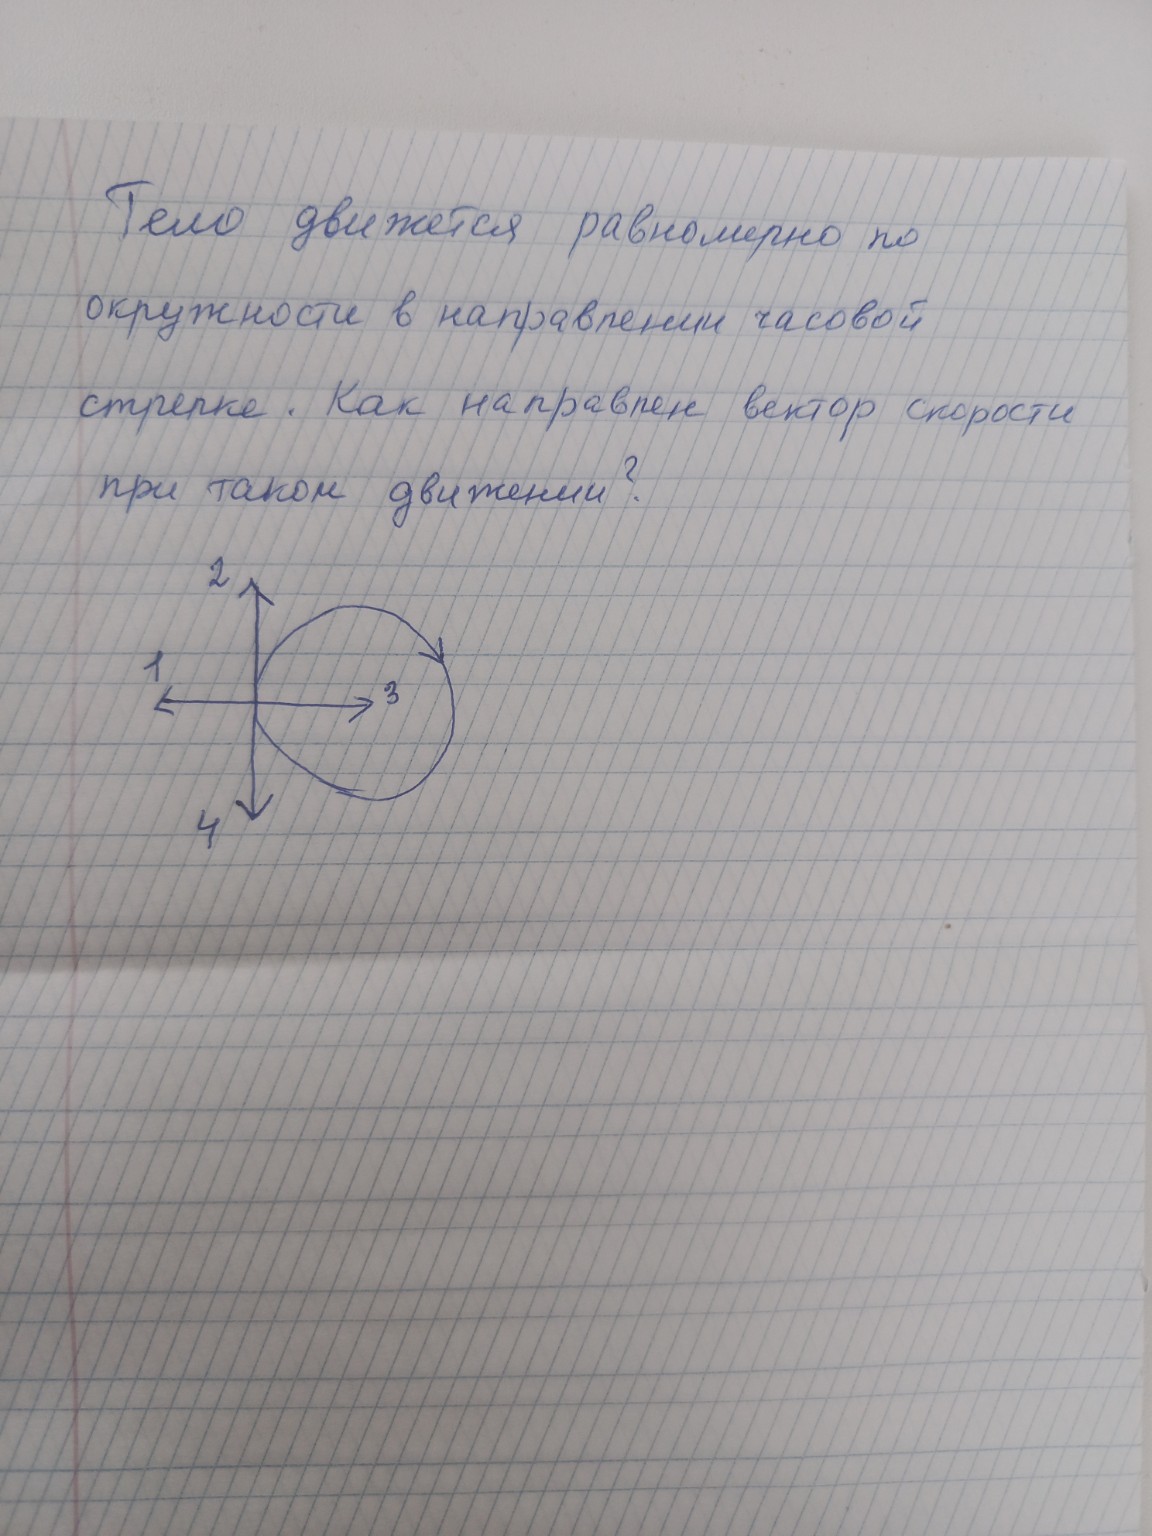 Тело движется равномерно по
окружности в направлении часовой
стрелке. Как направлен вектор скорости
при таком движении?
2
1
3
4